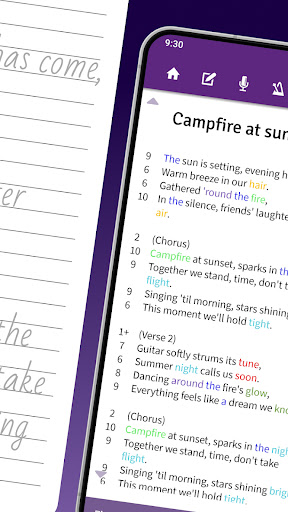 has come,
er
the
take
ng
9:30
Campfire at sun
9 The sun is setting, evening h
6 Warm breeze in our hair.
6 Gathered 'round the fire,
10 In the silence, friends' laughte
air.
2 (Chorus)
10 Campfire at sunset, sparks in the
9 Together we stand, time, don't t
flight.
9 Singing 'til morning, stars shining
6 This moment we'll hold tight.
1+ (Verse 2)
7 Guitar softly strums its tune,
6 Summer night calls us soon.
8 Dancing around the fire's glow,
9 Everything feels like a dream we kno
2 (Chorus)
10 Campfire at sunset, sparks in the nigh
9 Together we stand, time, don't take
flight.
9 Singing 'til morning, stars shining brig
6 This moment we'll hold tight.